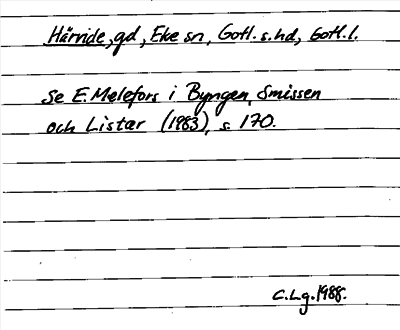 Härvide, gd, Eke sn, Gotl. s. hd, Gotl. l.
Se E. Melefors i Byngen, Smissen
och Listar (1983), s. 170.
C.Lg. 1988.